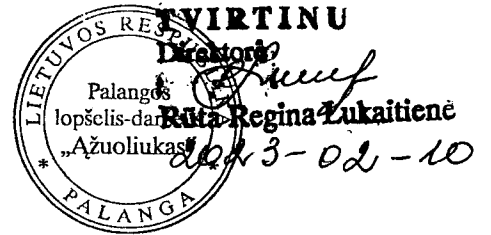 TVIRTINU
Direktorė
Rūta Regina Lukaitienė
2023-02-10
LIETUVOS RESP
Palangos
lopšelis-dar
„Ąžuoliukas“
* PALANGA *